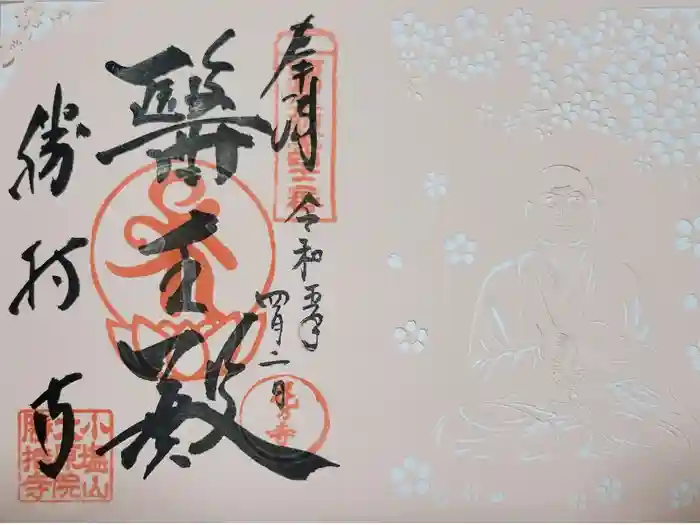 奉拝
令和五年
四月二日
醫王殿
勝持寺
小塩山
大原院
勝持寺